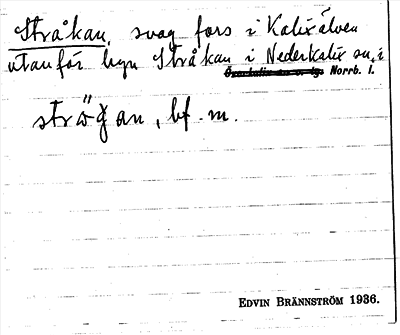 Stråkan, svag fors i Kalixälven
utanför byn Stråkan i Nederkalix sn, i
Norrb. l.
bf. m.
EDVIN BRÄNNSTRÖM 1936.